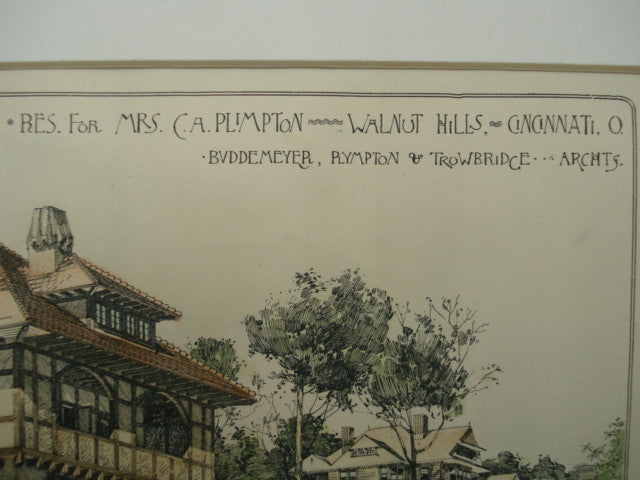 • RES. FOR MRS. C.A. PLIMPTON ~~~ WALNUT HILLS, ~ CINCINNATI. O.
• BVDDEMEYER, PLYMPTON & TROWBRIDGE - - ARCHTS.